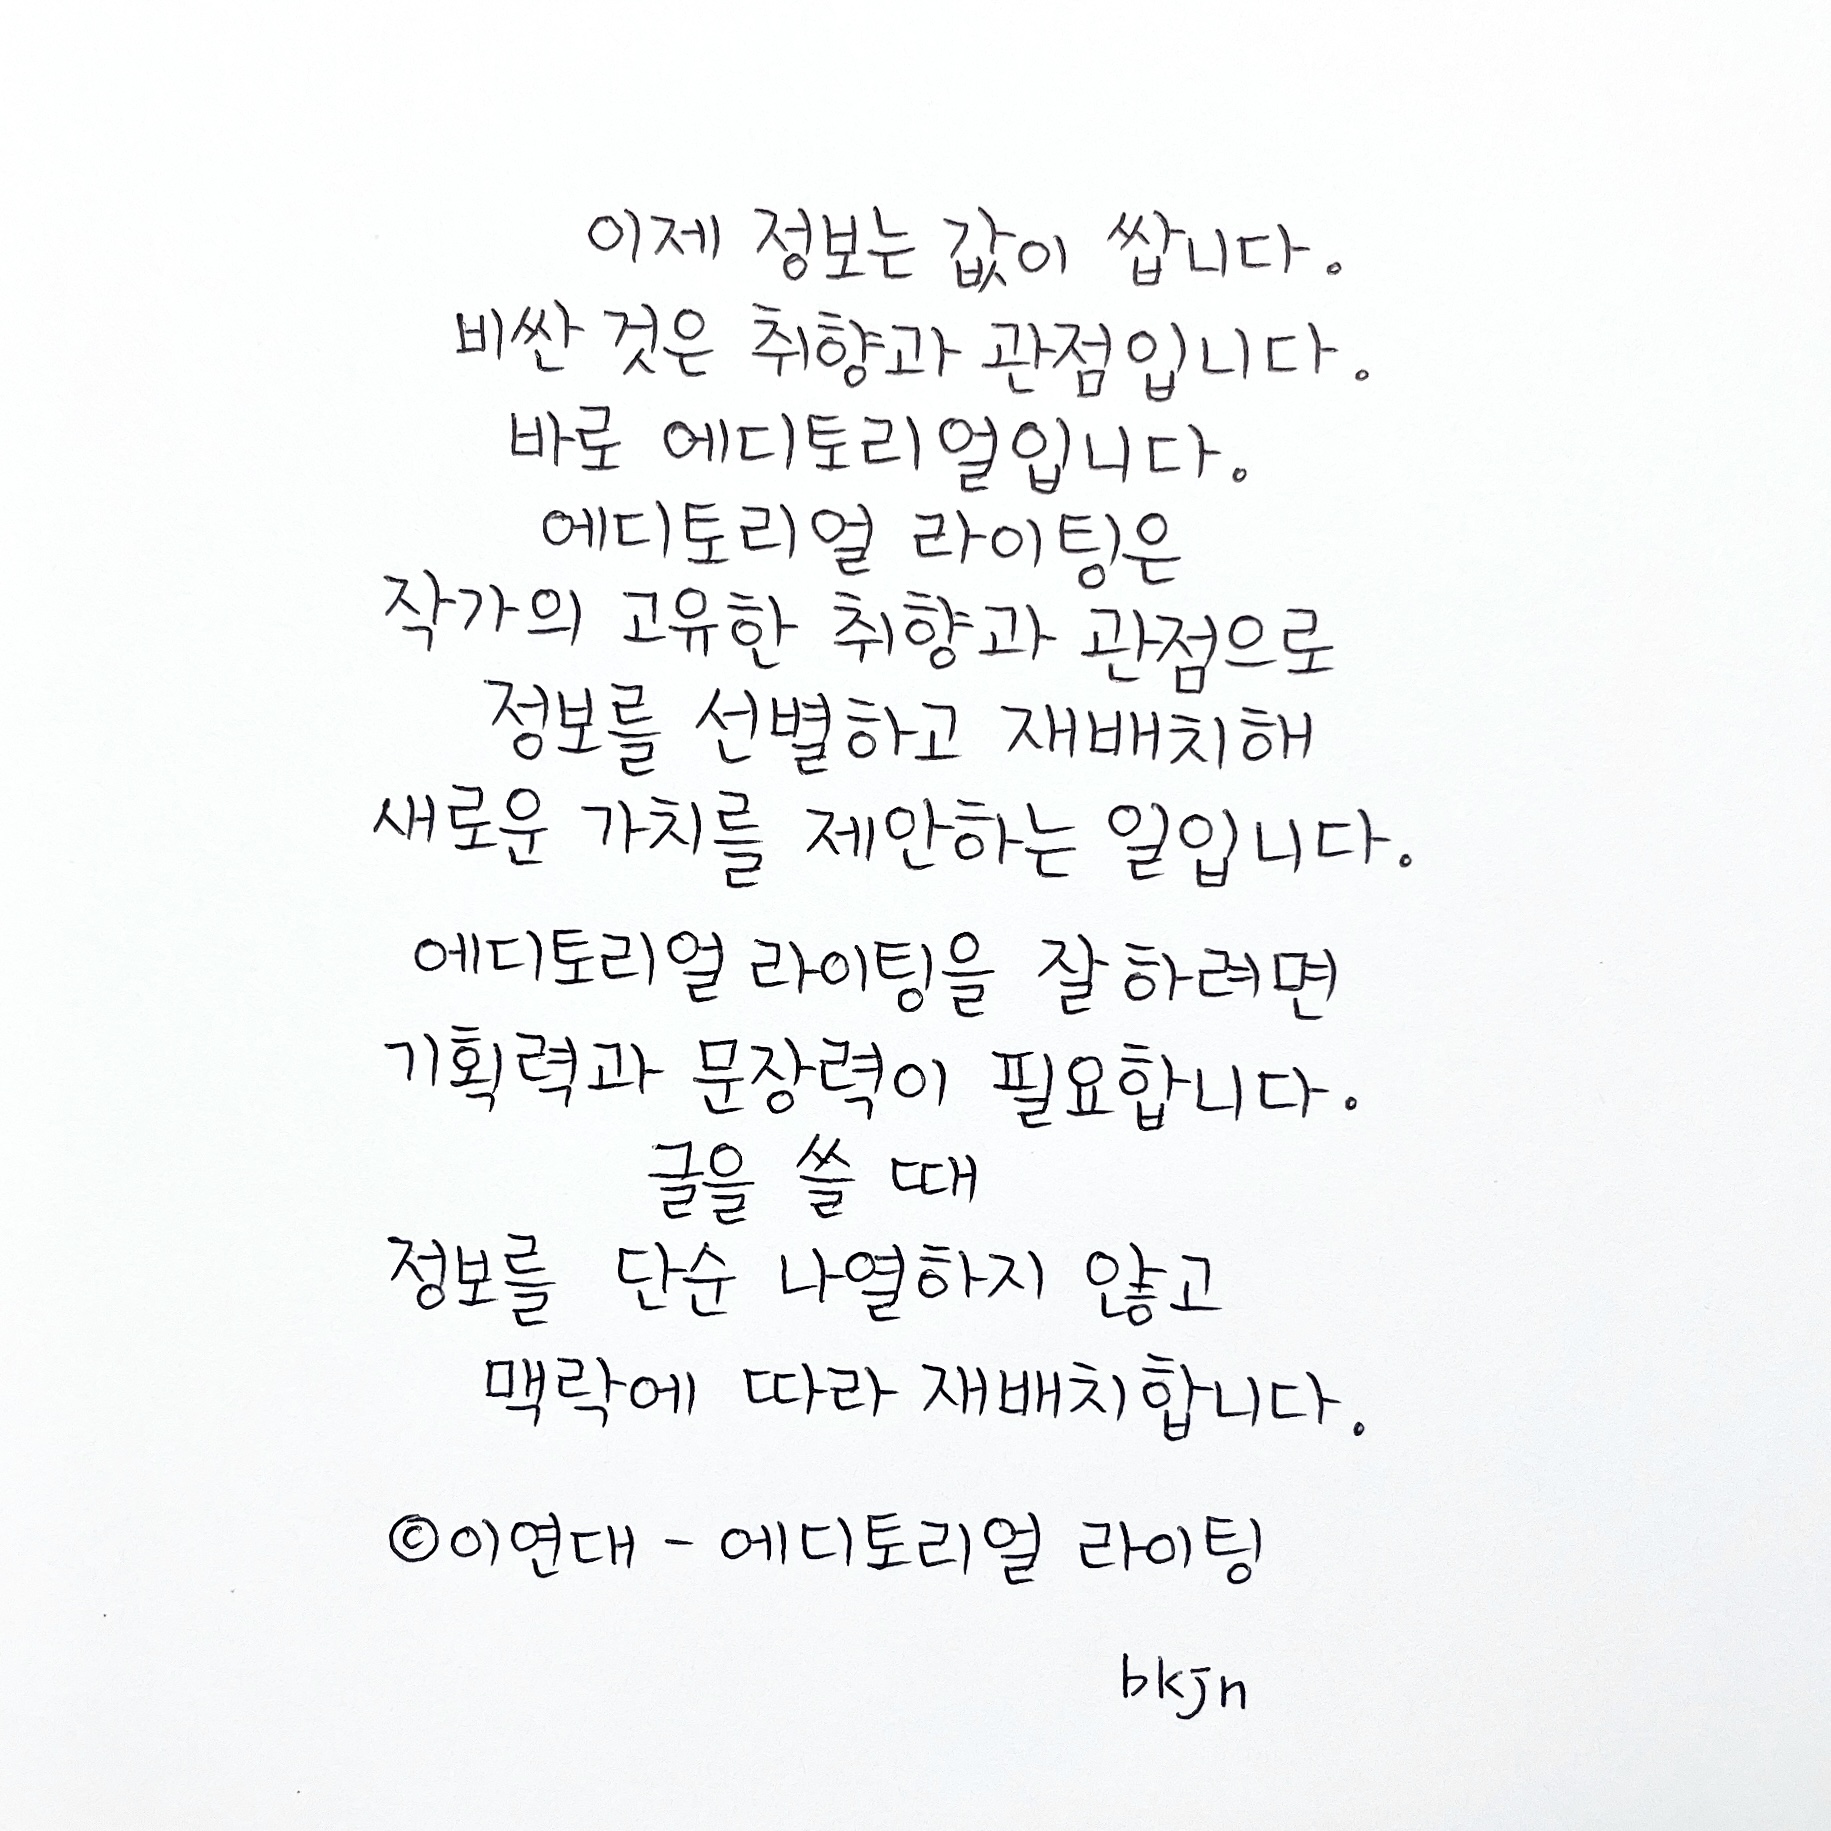 이제 정보는 값이 쌉니다.
비싼 것은 취향과 관점입니다.
바로 에디토리얼입니다.
에디토리얼 라이팅은
작가의 고유한 취향과 관점으로
정보를 선별하고 재배치해
새로운 가치를 제안하는 일입니다.
에디토리얼 라이팅을 잘하려면
기획력과 문장력이 필요합니다.
글을 쓸 때
정보를 단순 나열하지 않고
맥락에 따라 재배치합니다.
©이연대 - 에디토리얼 라이팅
bkjn